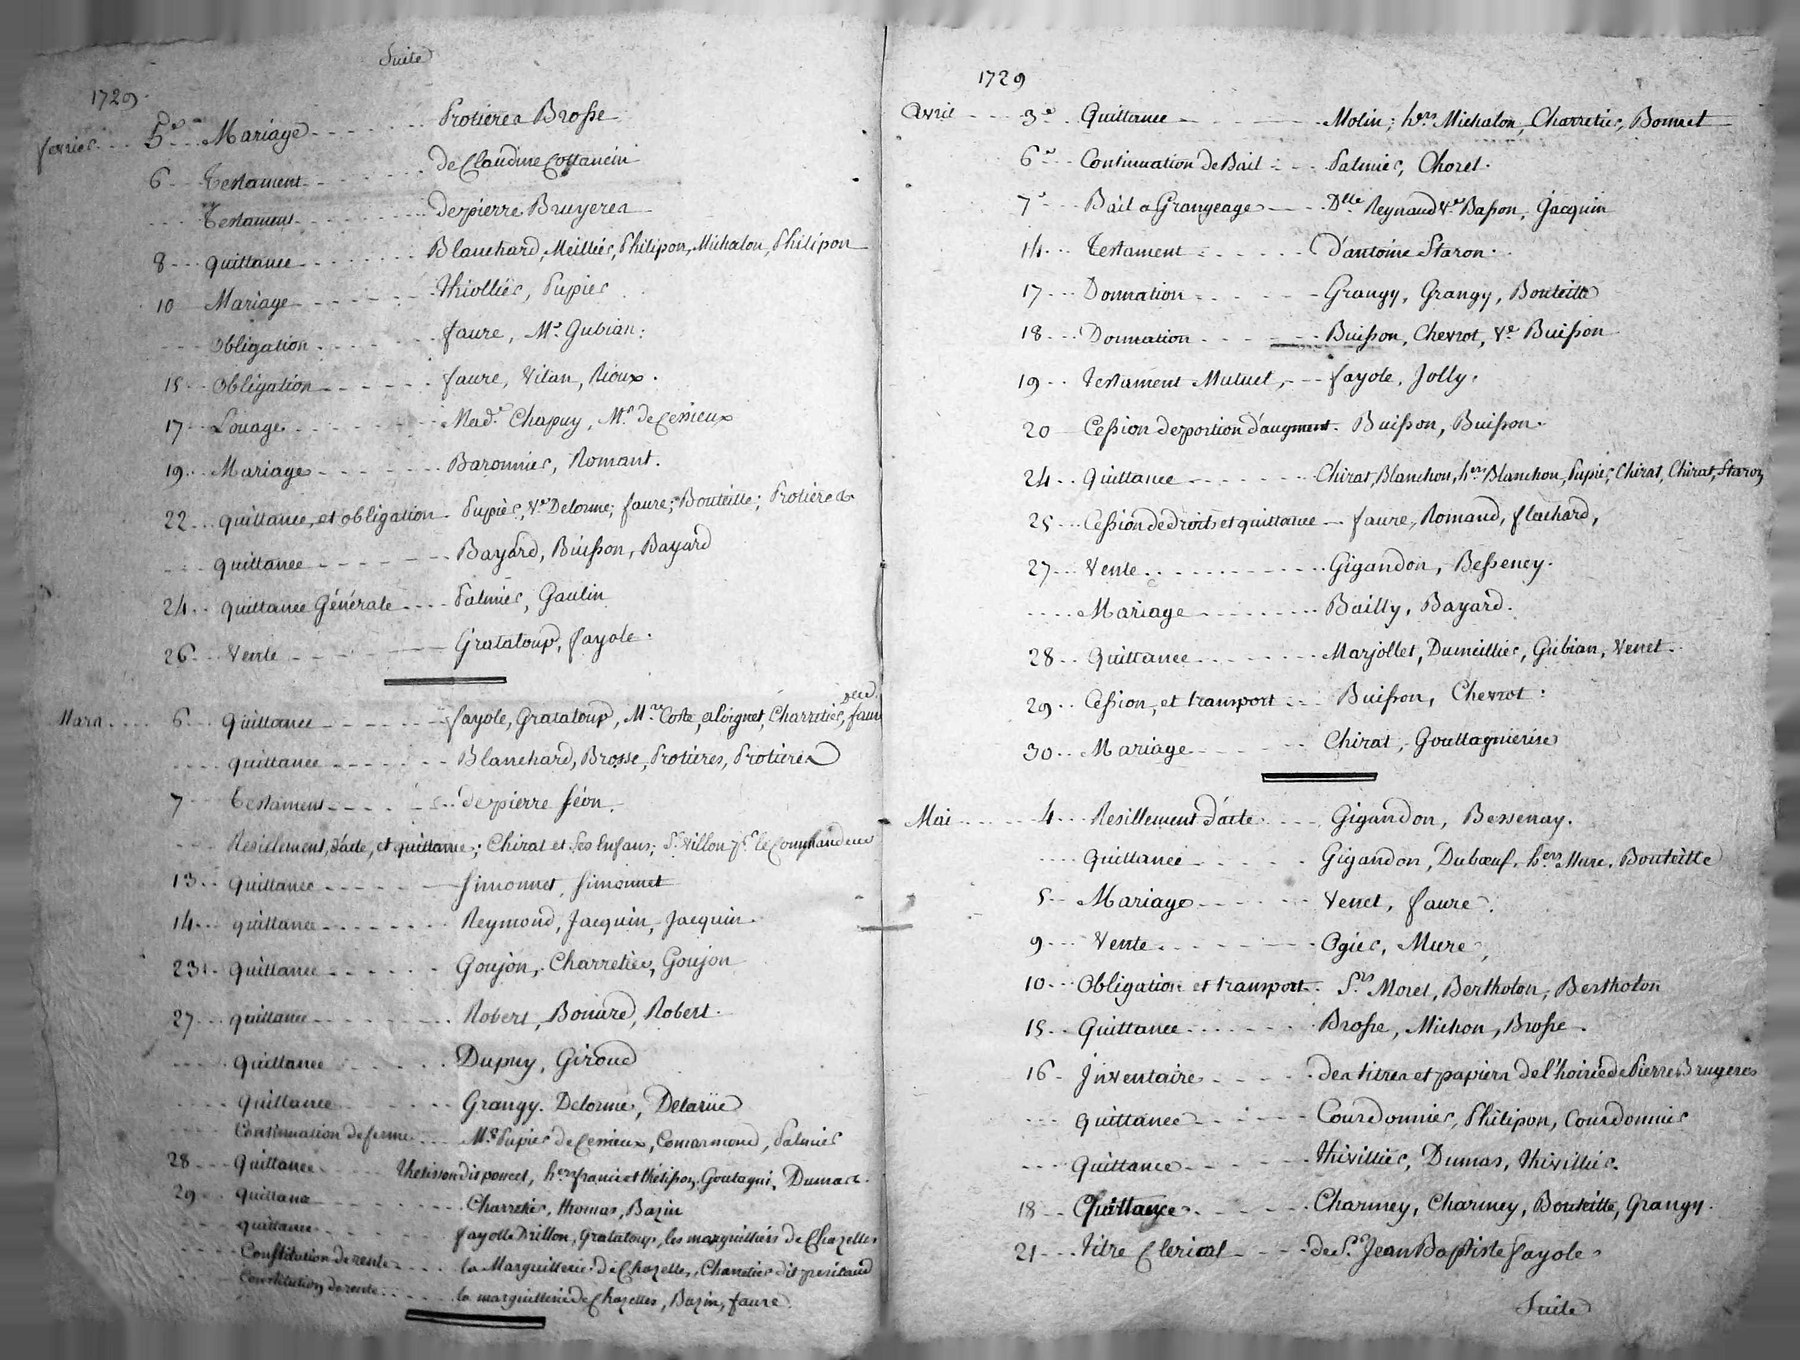 Suite
1729.
fevrier... 5e... Mariage....... Protiere a Brosse
6... Testament....... de Claudine Cottancin
... Testament....... de pierre Bruyeres
8... quittance....... Blanchard, Meillier, Philipon, Michalon, Philipon
10... Mariage....... thiollier, Pupier
... obligation....... faure, Mr. Gubian.
15... obligation....... faure, Vitan, Rioux.
17... Louage....... Made. Chapuy, Mr. de Cerrieux
19... Mariage....... Baronnier, Romant.
22... quittance, et obligation... Pupier, Ve Delorme; faure; Bouteille; Protieres
... quittance....... Bayard, Buisson, Bayard
24... quittance Générale.... Palmier, Gaulin
26... Vente....... Grataloup, fayole.
Mars.... 6... quittance....... fayole, Grataloup, Mre Coste, aloignet, Charretier, faure
... quittance....... Blanchard, Brosse, Protieres, Protieres
7... testament....... de pierre féon.
... Resillement, d'acte, et quittance; Chirat et ses Enfans; Sr. Villon pr. le Commandeur
13... quittance....... Simonnet, Simonnet
14... quittance....... Reymond, Jacquin, Jacquin.
23... quittance....... Goujon, Charretier, Goujon
27... quittance....... Robert, Bonard, Robert.
.... quittance....... Dupuy, Giroud
.... quittance....... Grangy, Delorme, Delarüe
.... Continuation de ferme.... Mr. Pupier de Cerrieux, Comarmond, Palmier
28... quittance..... thetisson dit poncet, hers. francois thetisson, Goutagni, Dumas.
29... quittance....... Charretier, thomas, Bazin
.... quittance....... fayolle Drillon, Grataloup, les marguilliers de Chazelles
.... Constitution de rente.... la Marguillerie de Chazelles, Charretier dit
.... Constitution de rente....... la marguillerie de Chazelles, Bazin, faure.
1729
Avril.... 3e. Quittance....... Molin; hers Michalon, Charretier, Bonnet
6e... Continuation de Bail.... Palmier, Choret.
7e... Bail a Grangeage.... Dlle. Reynaud Ve. Basson, Jacquin
14... Testament....... D'antoine Staron.
17... Donnation....... Grangy, Grangy, Bouteille
18... Donnation....... Buisson, Chevrot, Ve. Buisson
19... testament Mutuel,... fayole, Jolly.
20 Cession de portion d'augment. Buisson, Buisson.
24... Quittance....... Chirat, Blanchon, hers Blanchon, Pupier, Chirat, Chirat, Staron
25... Cession de droits et quittance... faure, Romand, flachard,
27... Vente....... Gigandon, Besseney.
.... Mariage....... Bailly, Bayard.
28... Quittance....... Marjollet, Dumillier, Gubian, Venet.
29... Cession, et transport.... Buisson, Chevrot.
30... Mariage....... Chirat, Gouttagnierise
Mai..... 4... Resillement d'acte.... Gigandon, Bessenay.
.... Quittance....... Gigandon, Duboeuf, hers Mure, Bouteille
5... Mariage....... Venet, faure.
9... Vente....... Ogier, Mure,
10... Obligation et transport.. Srs. Moret, Bertholon, Bertholon
15... Quittance....... Brosse, Michon, Brosse.
16. Inventaire..... des titres et papiers de l'hoirie de Pierre Bruyeres
... quittance....... Courdonnier, Philipon, Courdonnier
... quittance....... thivillier, Dumas, thivillier.
18... Quittance....... Charmey, Charmey, Bouteille, Grangy.
21... titre Clerical..... de Sr. Jean Baptiste fayole
Suite